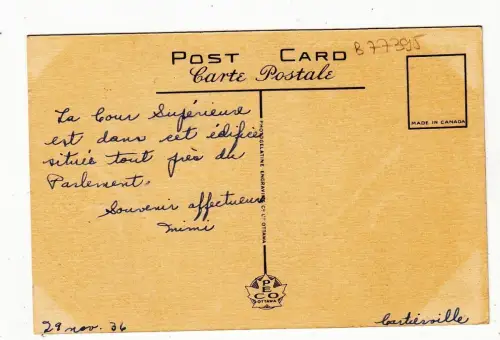 B 77395
POST CARD
Carte Postale
MADE IN CANADA
La Cour Supérieure
est dans cet édifice
située tout près du
Parlement.
Souvenir affectueux
Mimi
PHOTOGELATINE ENGRAVING CO. LTD. OTTAWA
PECO
OTTAWA
29 nov. 36
Cartierville